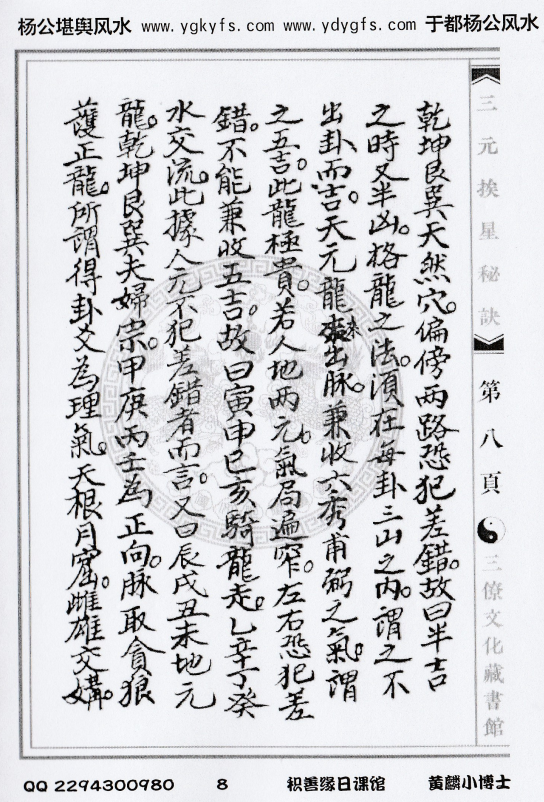 杨公堪舆风水 www.ygkyfs.com www.ydygfs.com 于都杨公风水
三元挨星秘訣
第八頁
三僚文化藏書館
乾坤艮巽天然穴。偏傍兩路恐犯差錯。故曰半吉
之時又半凶。格龍之法。須在每卦三山之內。謂之不
出卦而吉。天元龍來出脉。兼收六秀甫弼之氣。謂
之五吉。此龍極貴。若人地兩元。氣局遍窄。左右恐犯差
錯。不能兼收五吉。故曰寅申巳亥騎龍走。乙辛丁癸
水交流。此據人元不犯差錯者而言。又曰辰戌丑未地元
龍。乾坤艮巽夫婦宗。甲庚丙壬為正向。脉取貪狼
護正龍。所謂得卦爻為理氣。天根月窟。雌雄交媾。
QQ 2294300980 8 积善缘日课馆 黄麟小博士